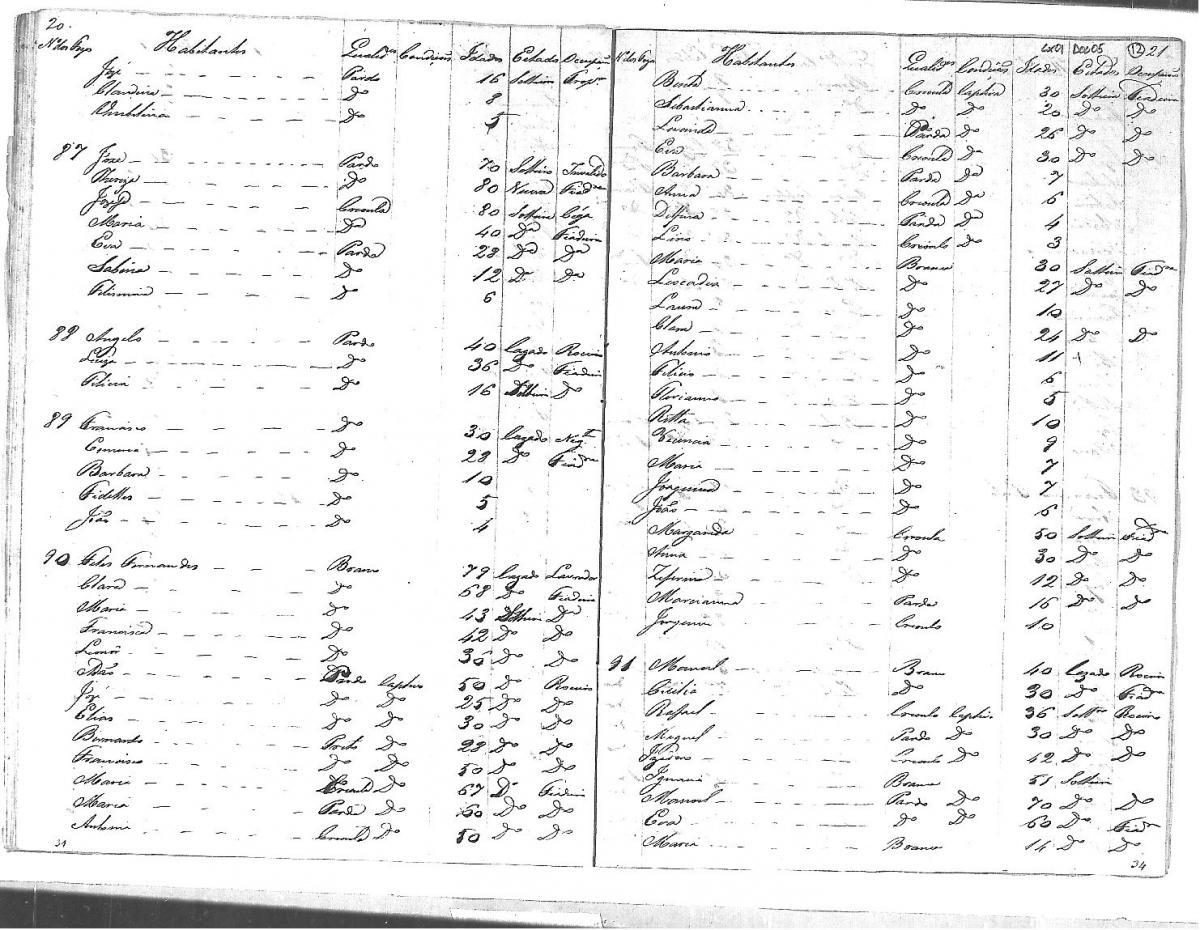 20.
Nos dos Fogos Habitantes Qualides Condições Idades Estados Ocupação
José Pardo 16 Solteiro
Claudina Do 8
Do 5
87 José Pardo 70 Solteiro Invalido
Do 80 Viuva Fiadra
Crioula 80 Solteira Céga
Maria Da 40 Da Fiadeira
Eva Parda 28 Da Da
Sabina Do 12 Da Da
Do 6
88 Angelo Pardo 40 Cazado Roceiro
Luiza Do 36 Do Fiadeira
Felicia Do 16 Solteira Do
89 Francisco Do 30 Cazado Negte
Do 28 Do Fiadra
Barbara Do 10
Fidelles Do 5
João Do 4
90 Feles Fernandes Branco 79 Cazado Lavrador
Clara Do 68 Do Fiadeira
Maria Do 43 Solteira Da
Francisca Do 42 Do Do
Do 30 Do Do
Adão Pardo Captivo 50 Do Roceiro
José Do Do 25 Do Do
Elias Do Do 30 Do Do
Bernardo Preto Do 28 Do Do
Francisco Do Do 50 Do Do
Maria Crioula Do 67 Da Fiadeira
Maria Parda Do 60 Do Do
Antonia Crioula Do 50 Do Do
34
CX01 DOC05 12 21
Nos dos Fogos Habitantes Qualides Condições Idades Estados Ocupação
Crioula Captiva 30 Solteira Fiadeira
Sebastianna Do Do 20 Do Do
Parda Da 26 Do Do
Eva Crioula Da 30 Do Do
Barbara Parda Da 7
Anna Crioula Da 6
Delfina Parda Da 4
Lino Crioulo Do 3
Maria Branca 30 Solteira Fiadra
Leocadia Do 27 Do Do
Do 10
Clara Do 24 Do Do
Antonio Do 11
Felicio Do 6
Florianno Do 5
Ritta Do 10
Do 9
Maria Do 7
Joaquina Do 7
João Do 6
Margarida Crioula 50 Solteira Fiadra
Anna Do 30 Do Do
Zeferina Do 12 Do Do
Marcianna Parda 16 Do Do
Crioulo 10
91 Manoel Branco 40 Cazado Roceiro
Cicilia Do 30 Do Fiadra
Rafael Crioulo Captivo 36 Soltro Roceiro
Miguel Pardo Do 30 Do Do
Crioulo Do 42 Do Do
Ignacia Branca 51 Solteira
Manoel Pardo Do 70 Do Do
Eva Do Do 60 Do Fiadra
Maria Branca 14 Do Do
34